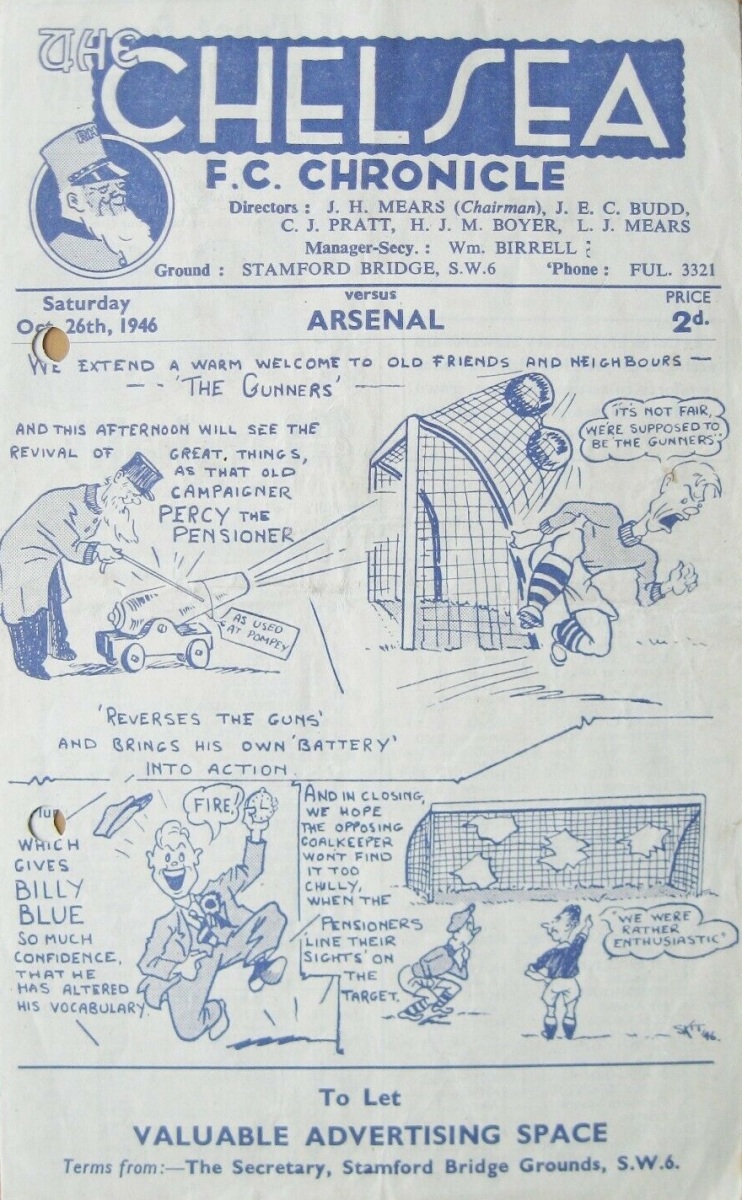 THE
CHELSEA
F.C. CHRONICLE
RH
Directors : J. H. MEARS (Chairman), J. E. C. BUDD,
C. J. PRATT, H. J. M. BOYER, L. J. MEARS
Manager-Secy. : Wm. BIRRELL
Ground : STAMFORD BRIDGE, S.W.6 'Phone : FUL. 3321
Saturday
Oct. 26th, 1946
versus
ARSENAL
PRICE
2d.
WE EXTEND A WARM WELCOME TO OLD FRIENDS AND NEIGHBOURS —
— - 'THE GUNNERS' —
AND THIS AFTERNOON WILL SEE THE
REVIVAL OF GREAT, THINGS,
AS THAT OLD
CAMPAIGNER
PERCY THE
PENSIONER
"IT'S NOT FAIR,
WE'RE SUPPOSED TO
BE 'THE GUNNERS'."
AS USED
AT POMPEY
'REVERSES THE GUNS'
AND BRINGS HIS OWN 'BATTERY'
INTO ACTION.
WHICH
GIVES
BILLY
BLUE
SO MUCH
CONFIDENCE,
THAT HE
HAS ALTERED
HIS VOCABULARY.
FIRE!
AND IN CLOSING,
WE HOPE
THE OPPOSING
GOALKEEPER
WONT FIND
IT TOO
CHILLY,
WHEN THE
PENSIONERS
LINE THEIR
SIGHTS' ON
THE
TARGET.
"WE WERE
RATHER
ENTHUSIASTIC"
To Let
VALUABLE ADVERTISING SPACE
Terms from:—The Secretary, Stamford Bridge Grounds, S.W.6.